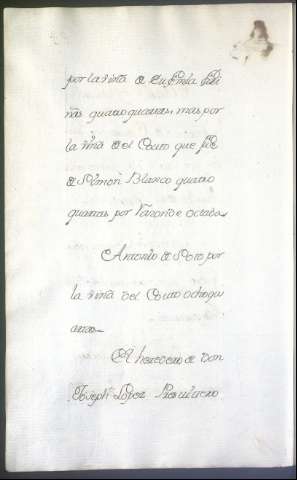 por la viña de Eufemia
ñas quatro quartas, mas por
la viña de el Couto que fue
de Simon Blanco quatro
quartas por razon de octabo
Antonio de Soto por
la viña del Couto ocho qu
artas
El heredero de Don
Joseph Lopez